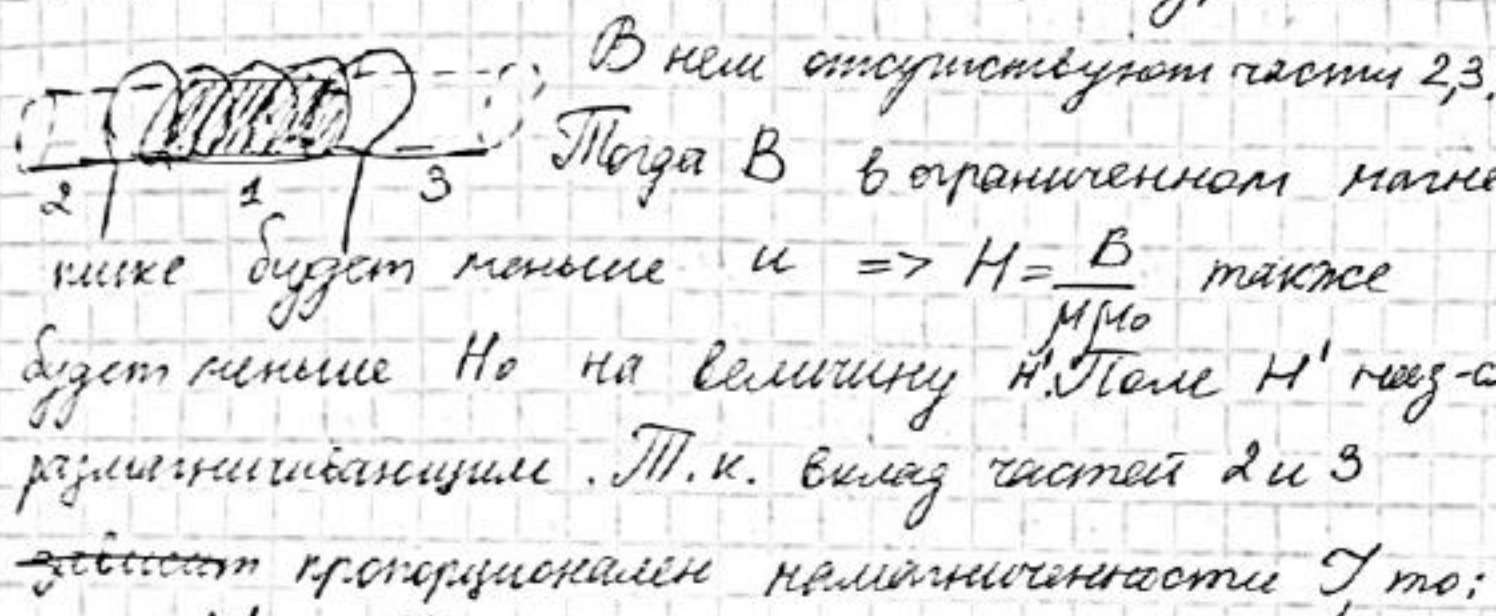 В нем отсутствуют части 2,3.
Тогда В в ограниченном магне
2 1 3
тике будет меньше и => H = B/μμ₀ также
будет меньше H₀ на величину H'. Поле H' наз-с
размагничивающим. Т.к. вклад частей 2 и 3
зависит пропорционален намагниченности J, то: